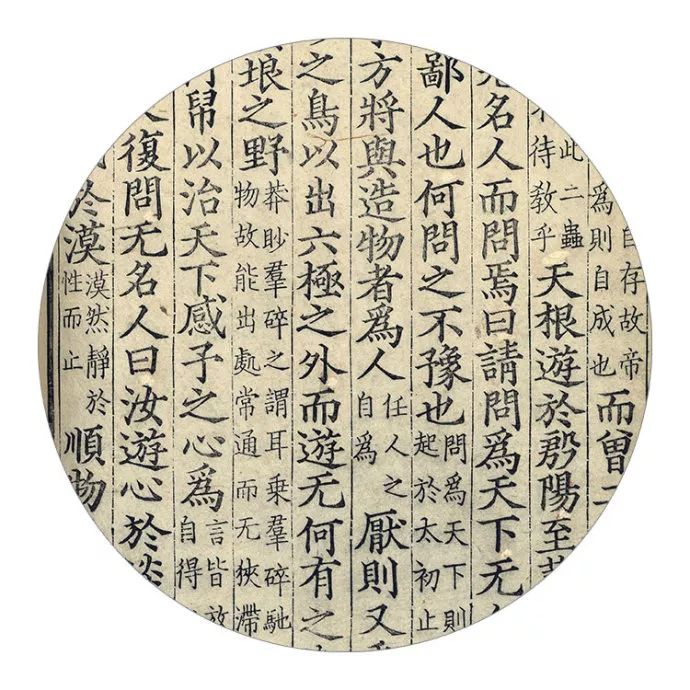 自存故帝
爲則自成也
而曾二
此二蟲
待教乎
天根遊於殷陽至
名人而問焉曰請問爲天下无
鄙人也何問之不豫也
問爲天下則
起於太初止
方將與造物者爲人
任人之
自爲
厭則又
之鳥以出六極之外而遊无何有之
埌之野
莽眇羣碎之謂耳乗羣碎馳
物故能出處常通而无狹滯
帠以治天下感予之心爲
言皆放
自得
復問无名人曰汝遊心於淡
於漠
漠然靜於
性而止
順物